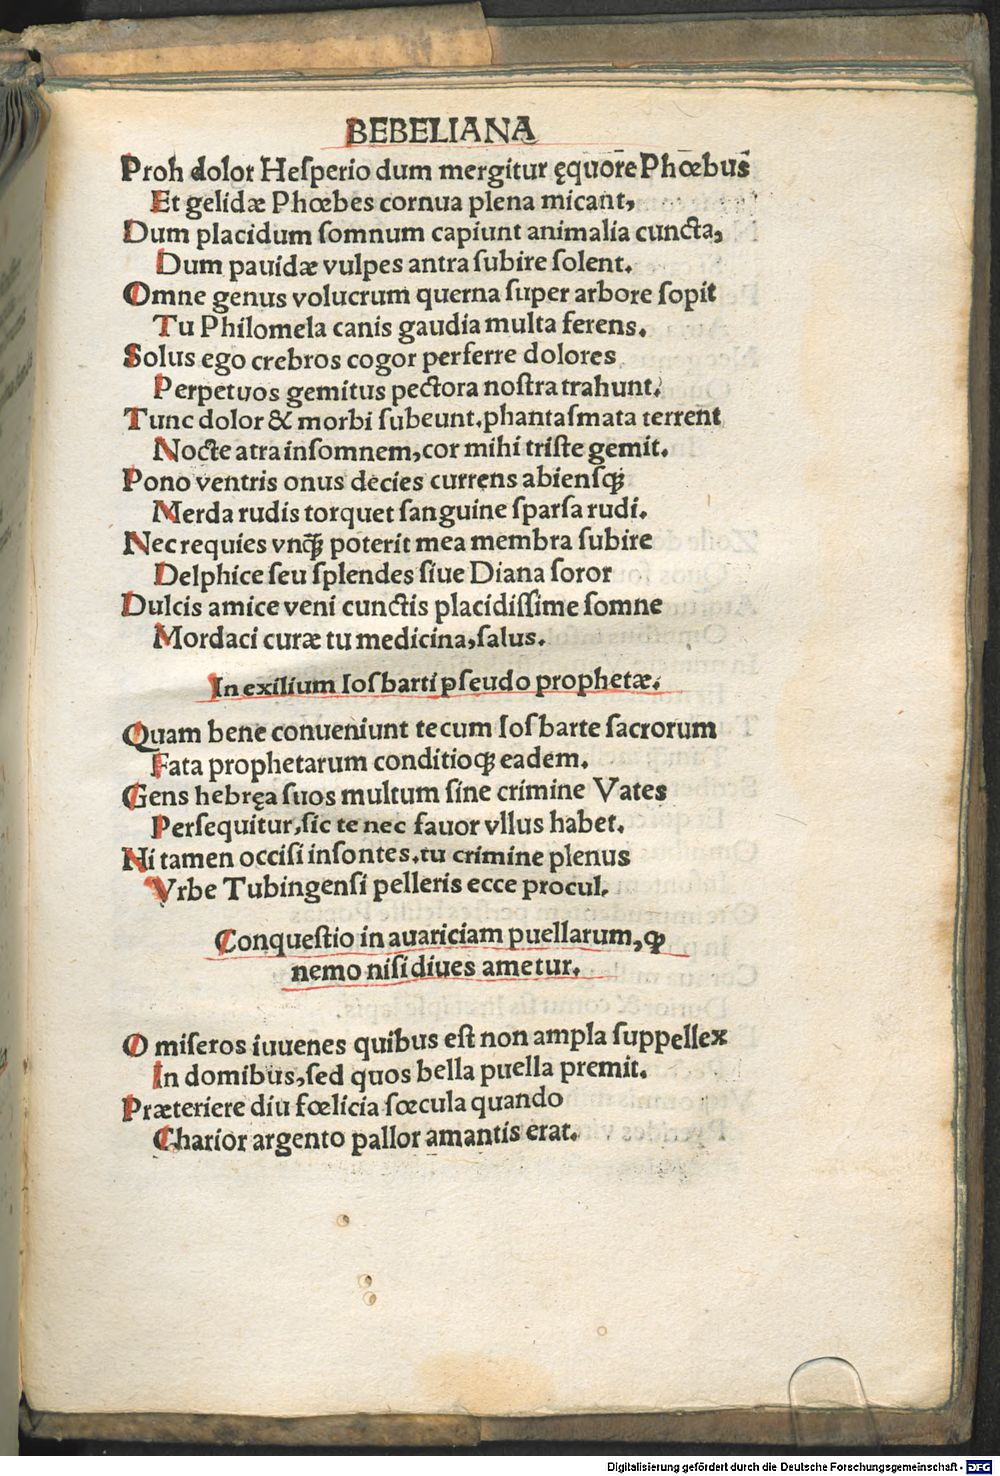 BEBELIANA
Proh dolor Heſperio dum mergitur ęquore̅ Phœbus̅
Et gelidæ Phœbes cornua plena micant,
Dum placidum ſomnum capiunt animalia cuncta,
Dum pauidæ vulpes antra ſubire ſolent.
Omne genus volucrum querna ſuper arbore ſopit
Tu Philomela canis gaudia multa ferens.
Solus ego crebros cogor perferre dolores
Perpetuos gemitus pectora noſtra trahunt.
Tunc dolor & morbi ſubeunt.phantaſmata terrent
Nocte atra inſomnem,cor mihi triſte gemit.
Pono ventris onus decies currens abienſcꝫ
Merda rudis torquet ſanguine ſparſa rudi.
Nec requies vnq̄ꝫ poterit mea membra ſubire
Delphice ſeu ſplendes ſiue Diana ſoror
Dulcis amice veni cunctis placidiſſime ſomne
Mordaci curæ tu medicina,ſalus.
In exilium Ioſbarti pſeudo prophetæ.
Quam bene conueniunt tecum Ioſbarte ſacrorum
Fata prophetarum conditioqꝫ eadem.
Gens hebręa ſuos multum ſine crimine Vates
Perſequitur,ſic te nec fauor vllus habet.
Ni tamen occiſi inſontes.tu crimine plenus
Vrbe Tubingenſi pelleris ecce procul.
Conqueſtio in auariciam puellarum,ꝙ
nemo niſi diues ametur.
O miſeros iuuenes quibus eſt non ampla ſuppellex
In domibus,ſed quos bella puella premit.
Præteriere diu fœlicia ſœcula quando
Charior argento pallor amantis erat.
Digitalisierung gefördert durch die Deutsche Forschungsgemeinschaft - DFG